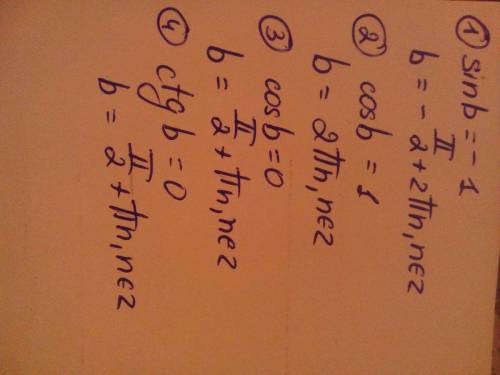 ① sin b = - 1
b = - π/2 + 2πn, n∈z
② cos b = 1
b = 2πn, n∈z
③ cos b = 0
b = π/2 + πn, n∈z
④ ctg b = 0
b = π/2 + πn, n∈z